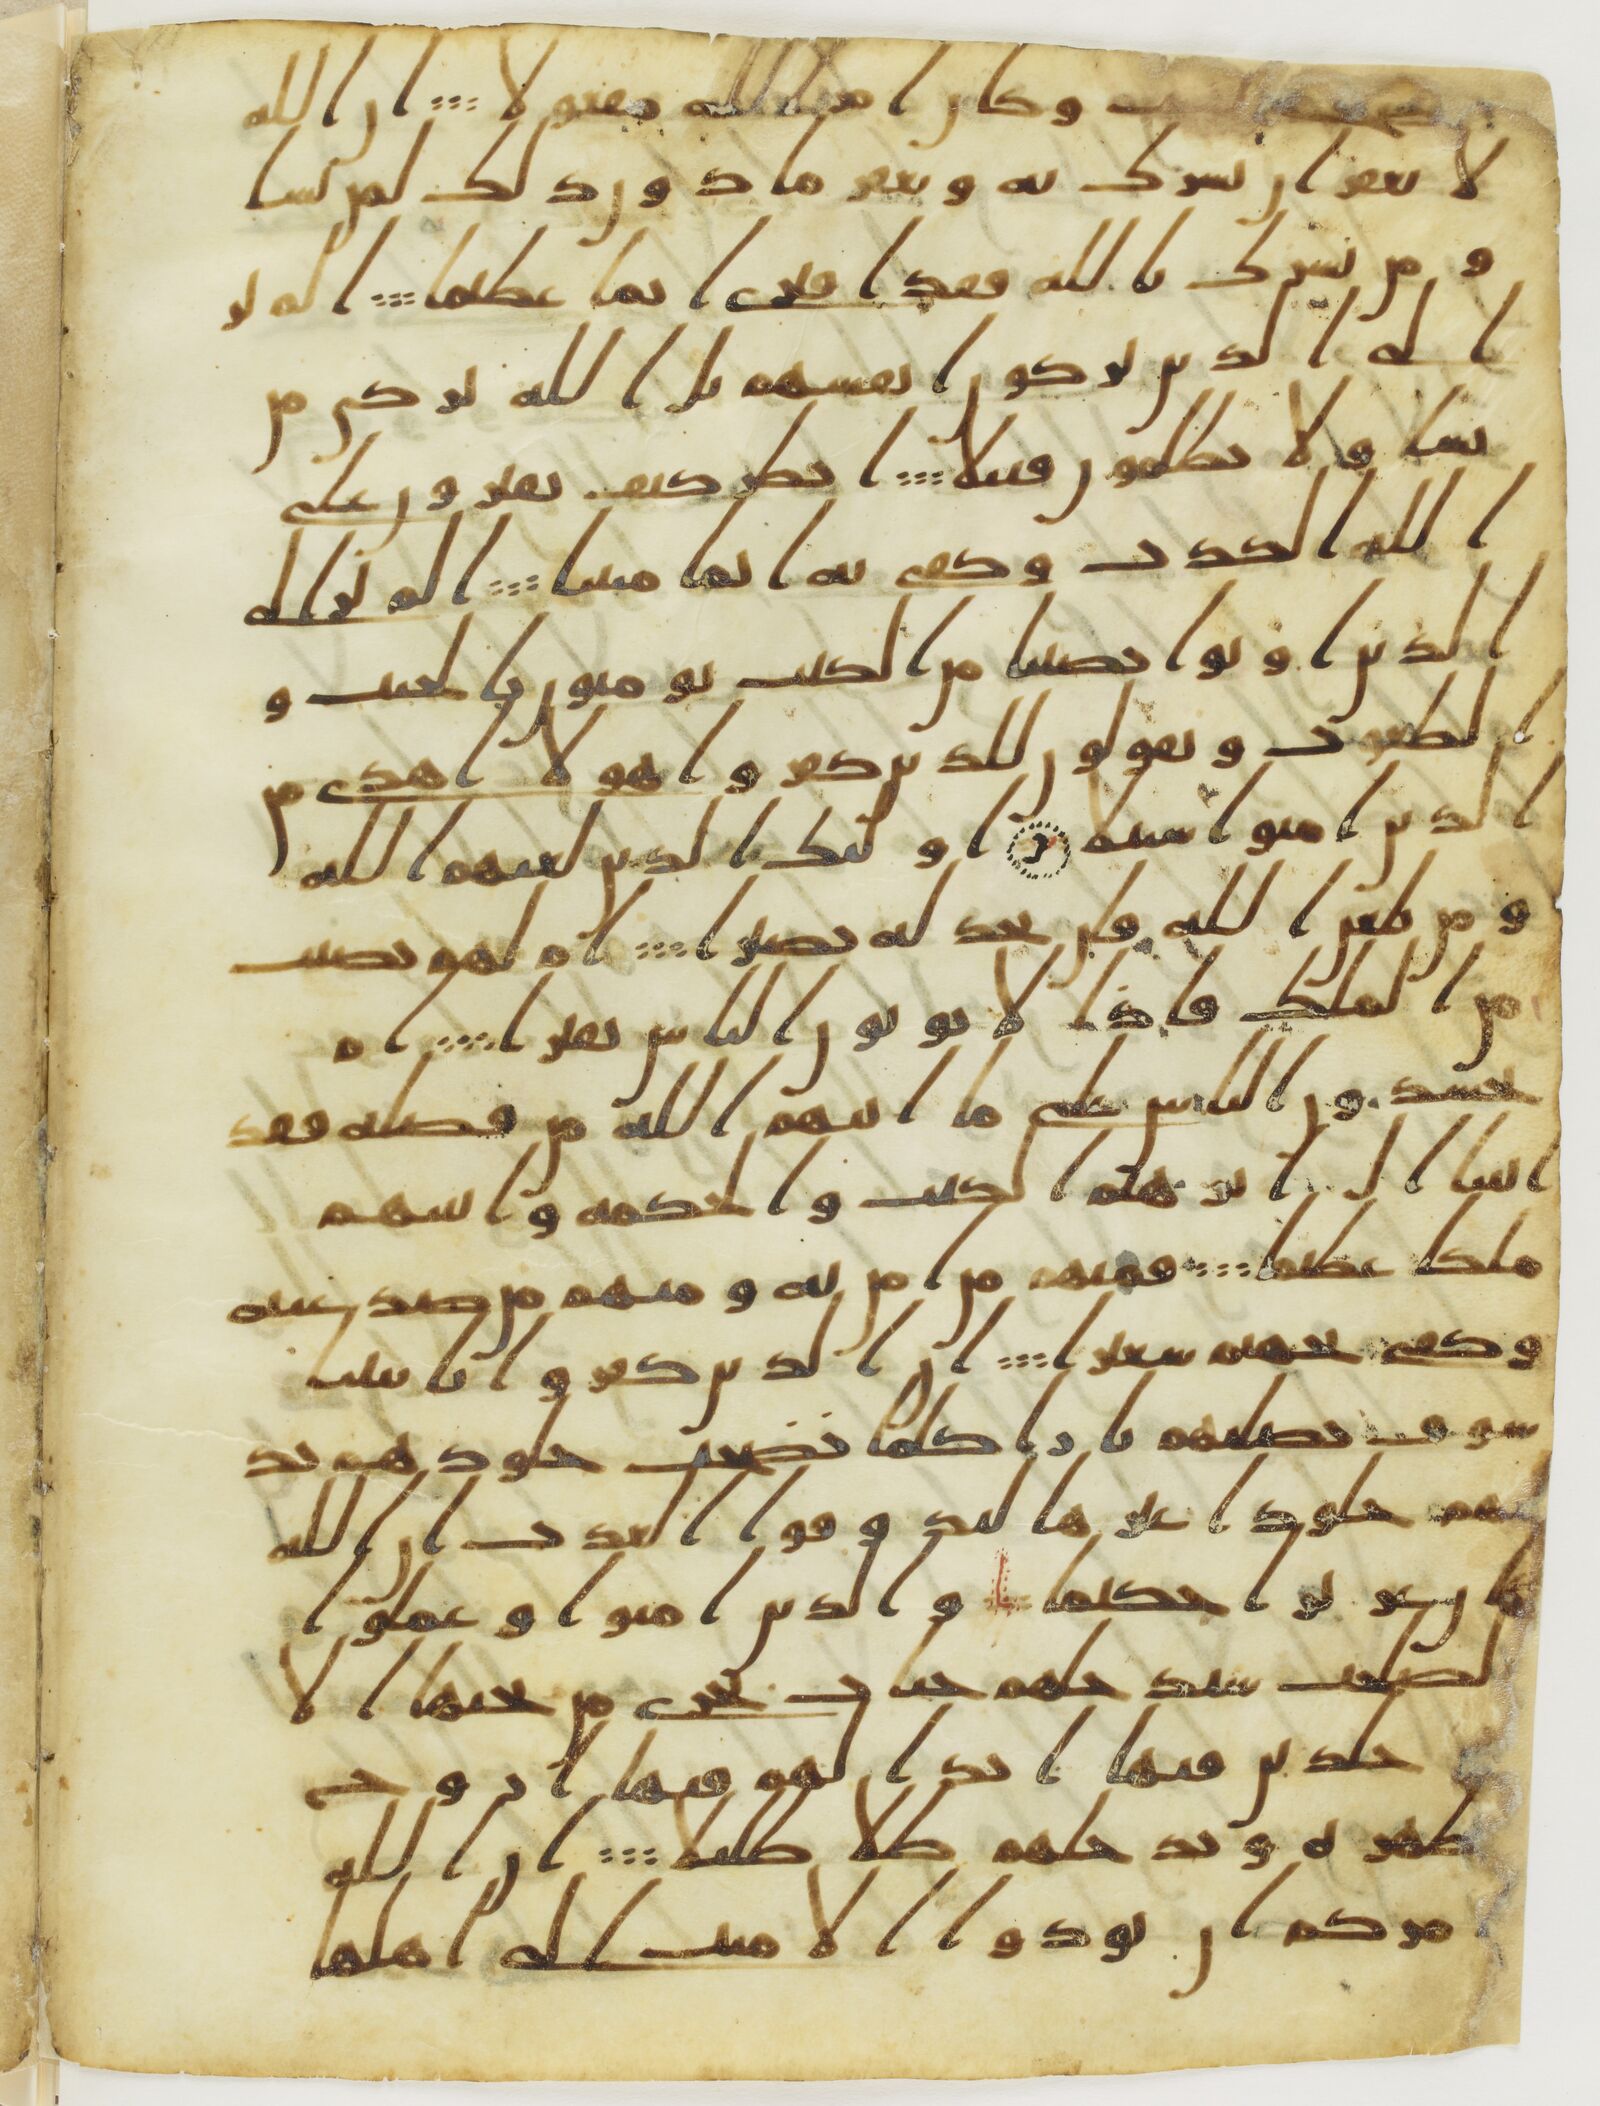 السبت وكان امر الله مفعولا ان الله
لا يغفر ان يشرك به ويغفر ما دون ذلك لمن يشا
ومن يشرك بالله فقد افترى اثما عظيما الم تر
الى الذين يزكون انفسهم بل الله يزكى من
يشا ولا يظلمون فتيلا انظر كيف يفترون على
الله الكذب وكفى به اثما مبينا الم تر الى
الذين اوتوا نصيبا من الكتب يومنون بالجبت و
الطغوت ويقولون للذين كفروا هولا اهدى من
الذين امنوا سبيلا اولئك الذين لعنهم الله
ومن يلعن الله فلن تجد له نصيرا ام لهم نصيب
من الملك فاذا لا يوتون الناس نقيرا ام
يحسدون الناس على ما اتيهم الله من فضله فقد
اتينا ال ابرهيم الكتب والحكمه واتينهم
ملكا عظيما فمنهم من امن به ومنهم من صد عنه
وكفى بجهنم سعيرا ان الذين كفروا باييتنا
سوف نصليهم نارا كلما نضجت جلودهم بد
لنهم جلودا غيرها ليذوقوا العذب ان الله
كان عزيزا حكيما والذين امنوا وعملوا ا
لصلحت سندخلهم جنت تجرى من تحتها الا
نهر خلدين فيها ابدا لهم فيها ازوج
مطهره وندخلهم ظلا ظليلا ان الله
يامركم ان تودوا الامنت الى اهلها